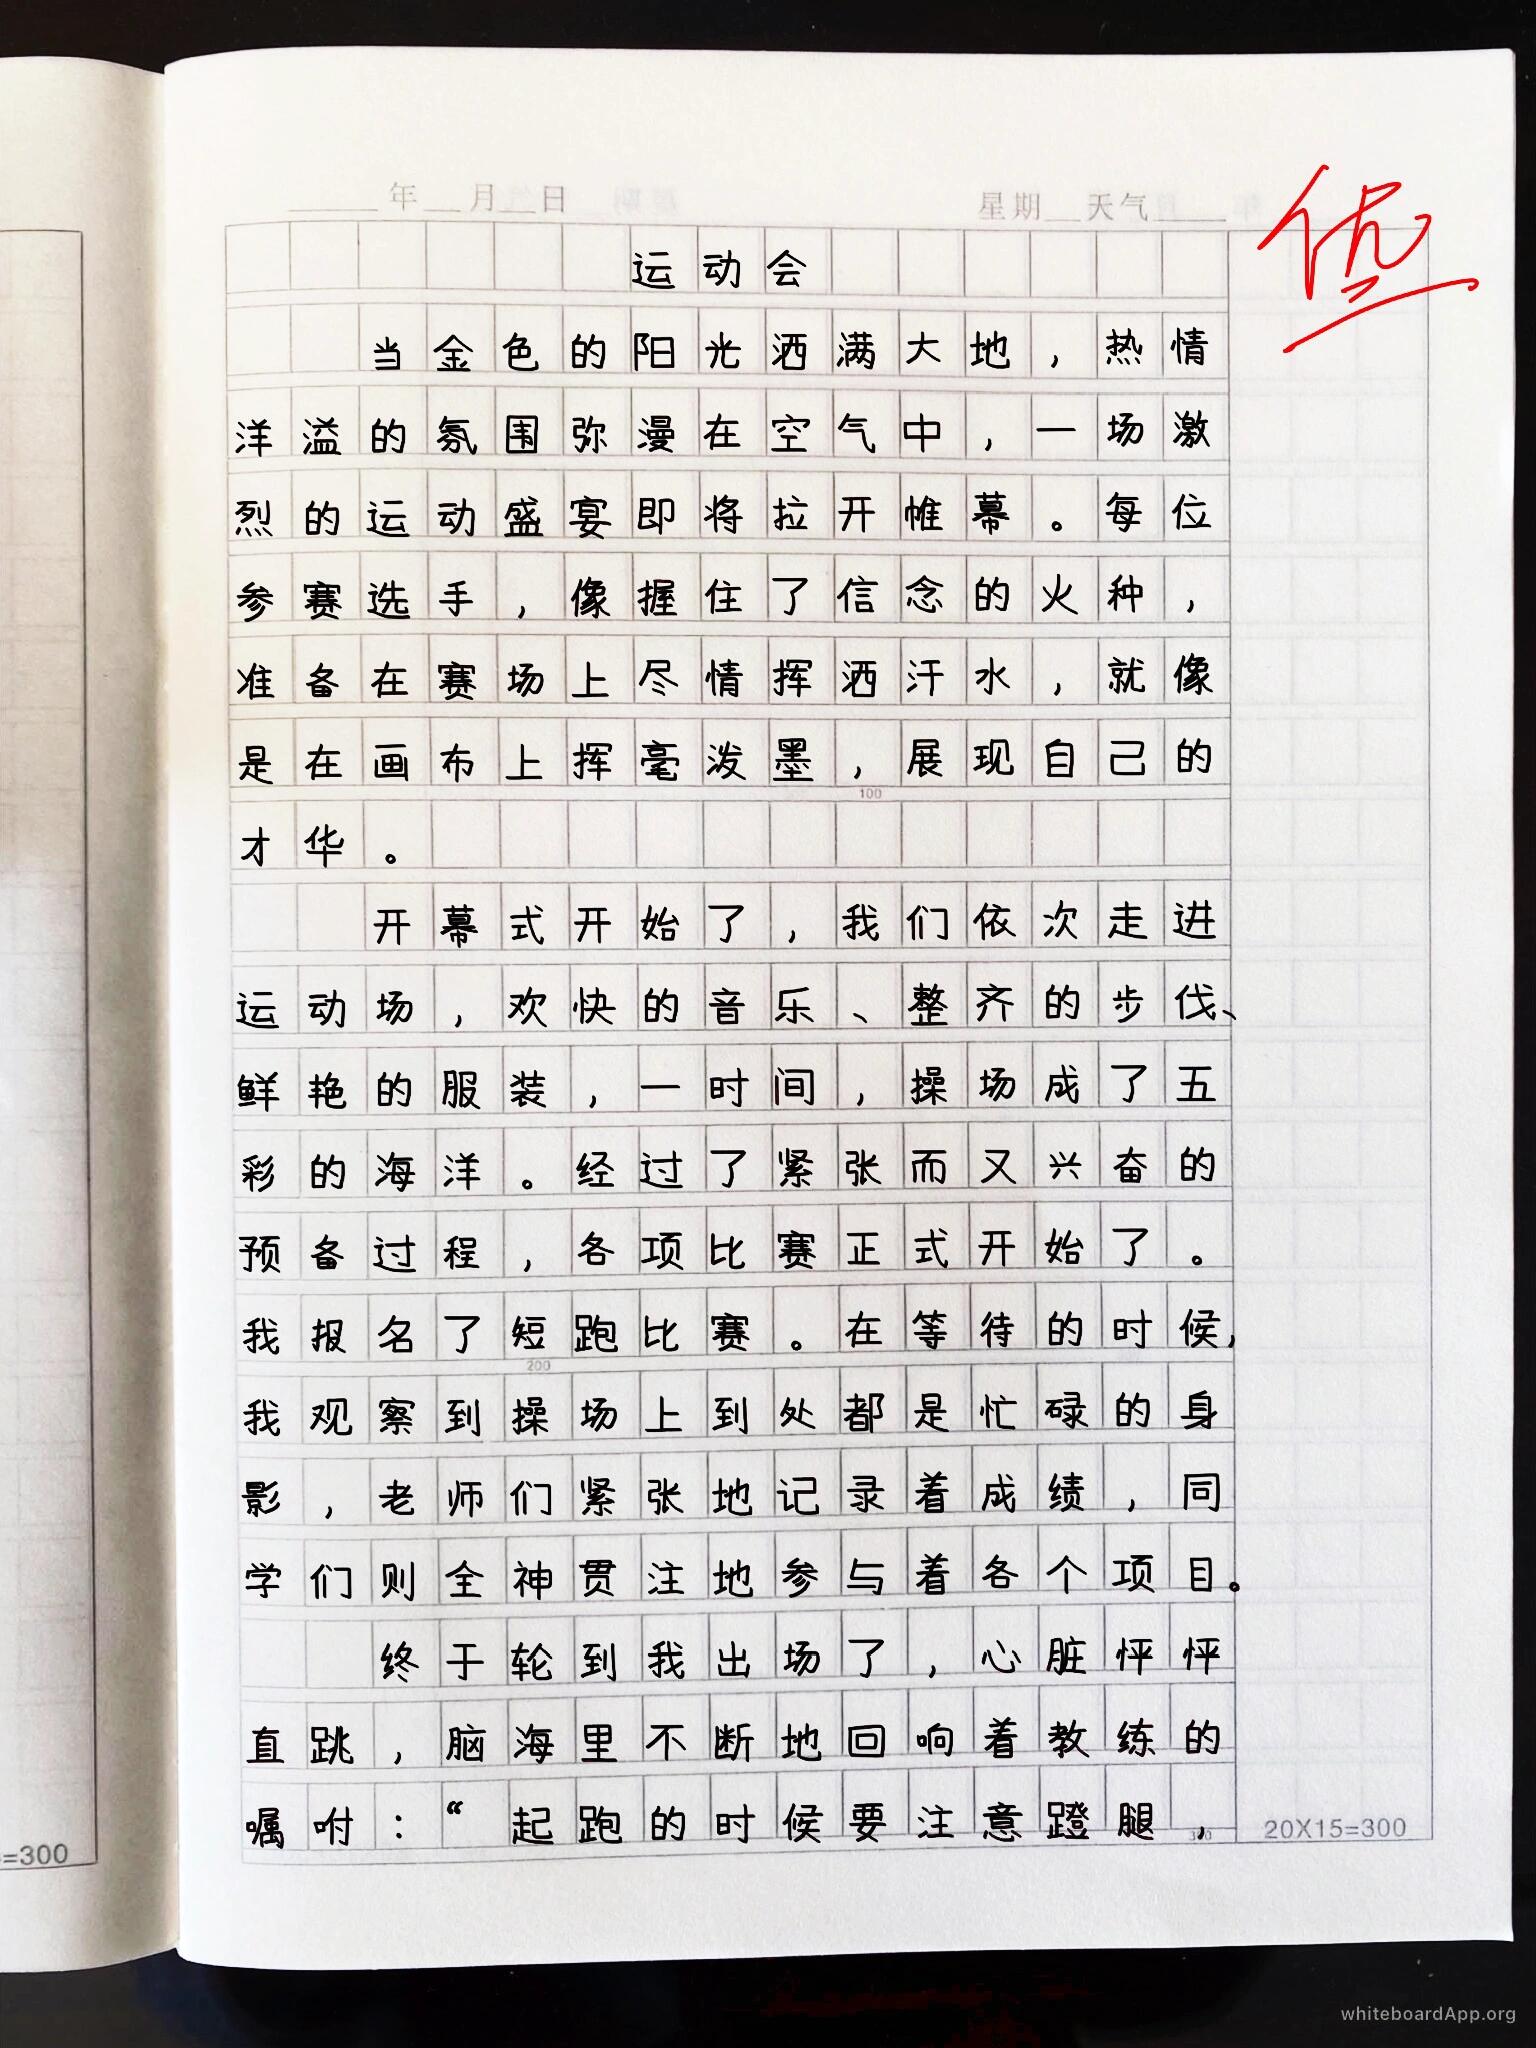 年 月 日 星期 天气
优
运动会
当金色的阳光洒满大地，热情
洋溢的氛围弥漫在空气中，一场激
烈的运动盛宴即将拉开帷幕。每位
参赛选手，像握住了信念的火种，
准备在赛场上尽情挥洒汗水，就像
是在画布上挥毫泼墨，展现自己的
100
才华。
开幕式开始了，我们依次走进
运动场，欢快的音乐、整齐的步伐、
鲜艳的服装，一时间，操场成了五
彩的海洋。经过了紧张而又兴奋的
预备过程，各项比赛正式开始了。
我报名了短跑比赛。在等待的时候，
200
我观察到操场上到处都是忙碌的身
影，老师们紧张地记录着成绩，同
学们则全神贯注地参与着各个项目。
终于轮到我出场了，心脏怦怦
直跳，脑海里不断地回响着教练的
嘱咐：“起跑的时候要注意蹬腿，
300
20X15=300
=300
whiteboardApp.org